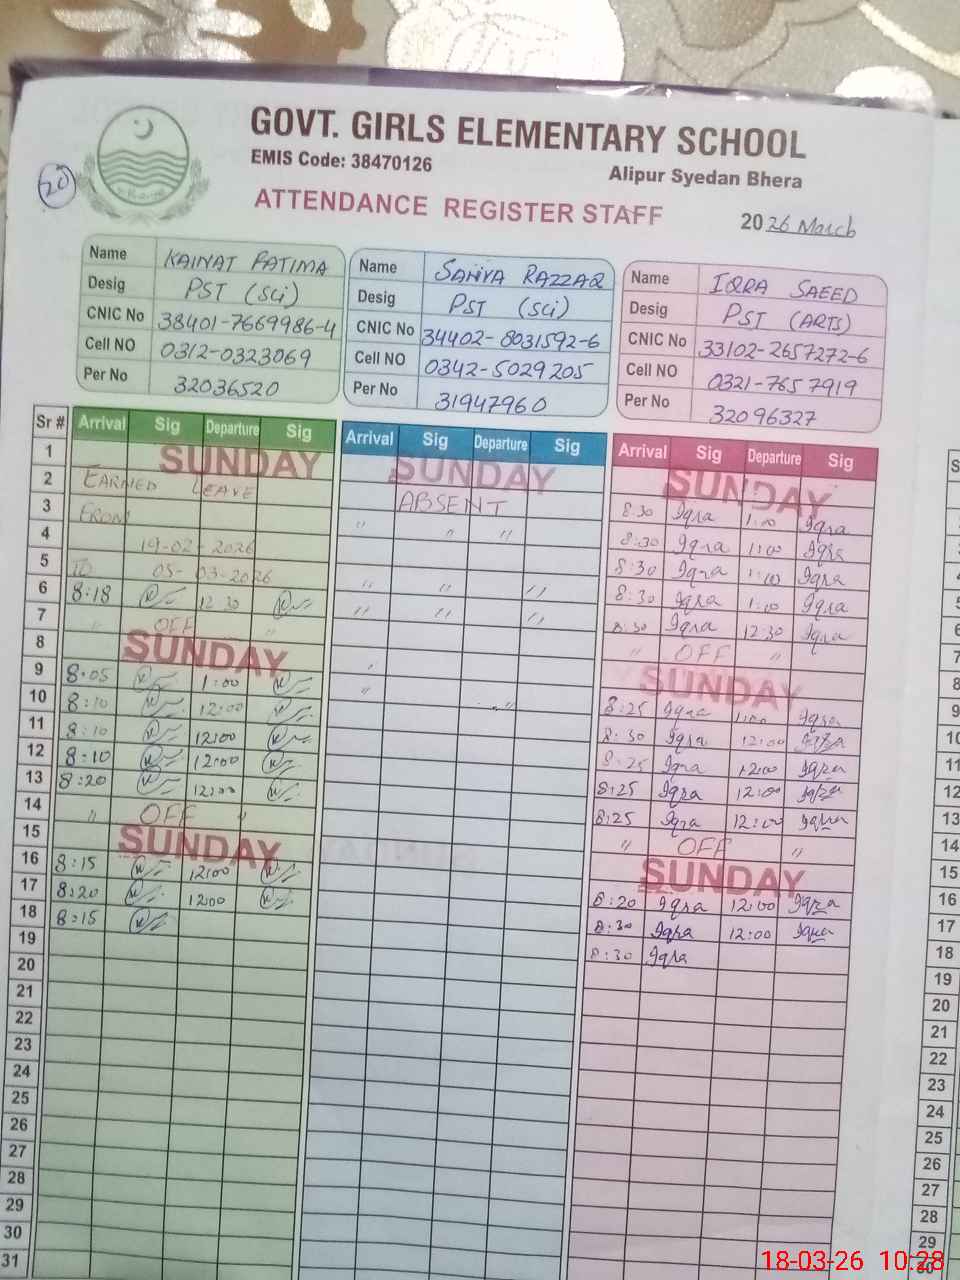 GOVT. GIRLS ELEMENTARY SCHOOL
EMIS Code: 38470126
Alipur Syedan Bhera
20
ATTENDANCE REGISTER STAFF
2026 March
Name KAINAT FATIMA
Desig PST (Sci)
CNIC No 38401-7669986-4
Cell NO 0312-0323069
Per No 32036520
Name SANIYA RAZZAQ
Desig PST (Sci)
CNIC No 34402-8031592-6
Cell NO 0342-5029205
Per No 31947960
Name IQRA SAEED
Desig PST (ARTS)
CNIC No 33102-2657272-6
Cell NO 0321-7657919
Per No 32096327
Sr # Arrival Sig Departure Sig Arrival Sig Departure Sig Arrival Sig Departure Sig
1 SUNDAY SUNDAY SUNDAY
2 EARNED LEAVE ABSENT 8:30 Iqra 1:00 Iqra
3 FROM " " " 8:30 Iqra 1:00 Iqra
4 19-02-2026 8:30 Iqra 1:00 Iqra
5 TO 05-03-2026 " " " 8:30 Iqra 1:00 Iqra
6 8:18 12:30 " " " 8:30 Iqra 12:30 Iqra
7 " OFF " " OFF "
8 SUNDAY " SUNDAY
9 8:05 1:00 " " 8:25 Iqra 1:00 Iqra
10 8:10 12:00 8:30 Iqra 12:00 Iqra
11 8:10 12:00 8:25 Iqra 12:00 Iqra
12 8:10 12:00 8:25 Iqra 12:00 Iqra
13 8:20 12:00 8:25 Iqra 12:00 Iqra
14 " OFF " " OFF "
15 SUNDAY SUNDAY
16 8:15 12:00 8:20 Iqra 12:00 Iqra
17 8:20 12:00 8:30 Iqra 12:00 Iqra
18 8:15 8:30 Iqra
19
20
21
22
23
24
25
26
27
28
29
30
31
S
5
6
7
8
9
10
11
12
13
14
15
16
17
18
19
20
21
22
23
24
25
26
27
28
29
30
18-03-26 10:28